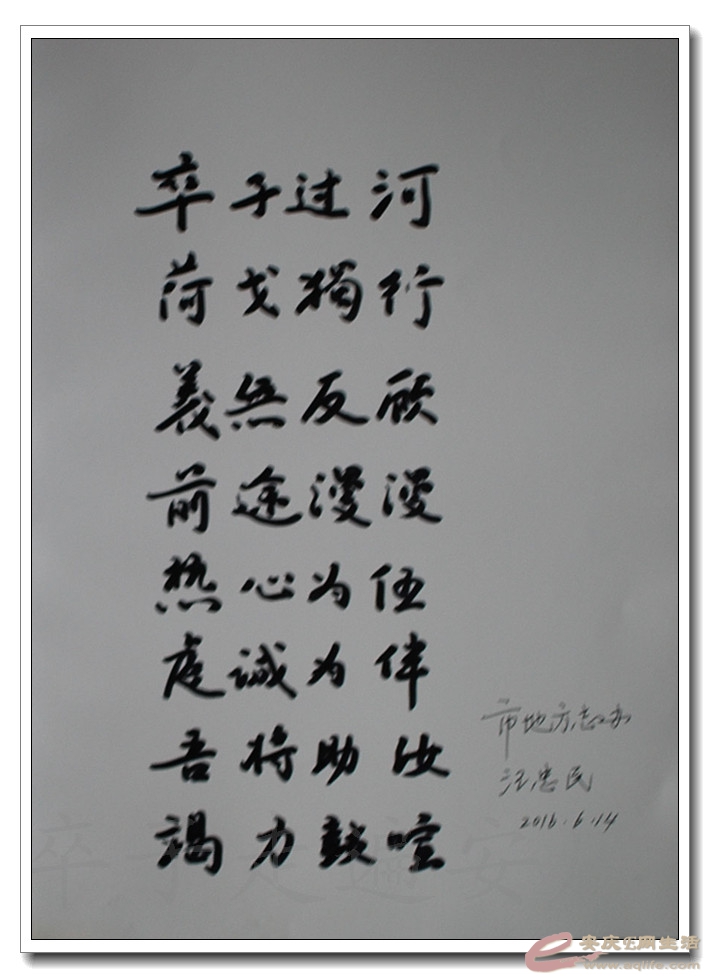 卒子过河
荷戈獨行
義無反顾
前途漫漫
热心为伍
虔诚为伴
吾将助汝
竭力鼓喧
市地方志办
汪忠民
2016.6.14
安庆E网生活
www.aqlife.com